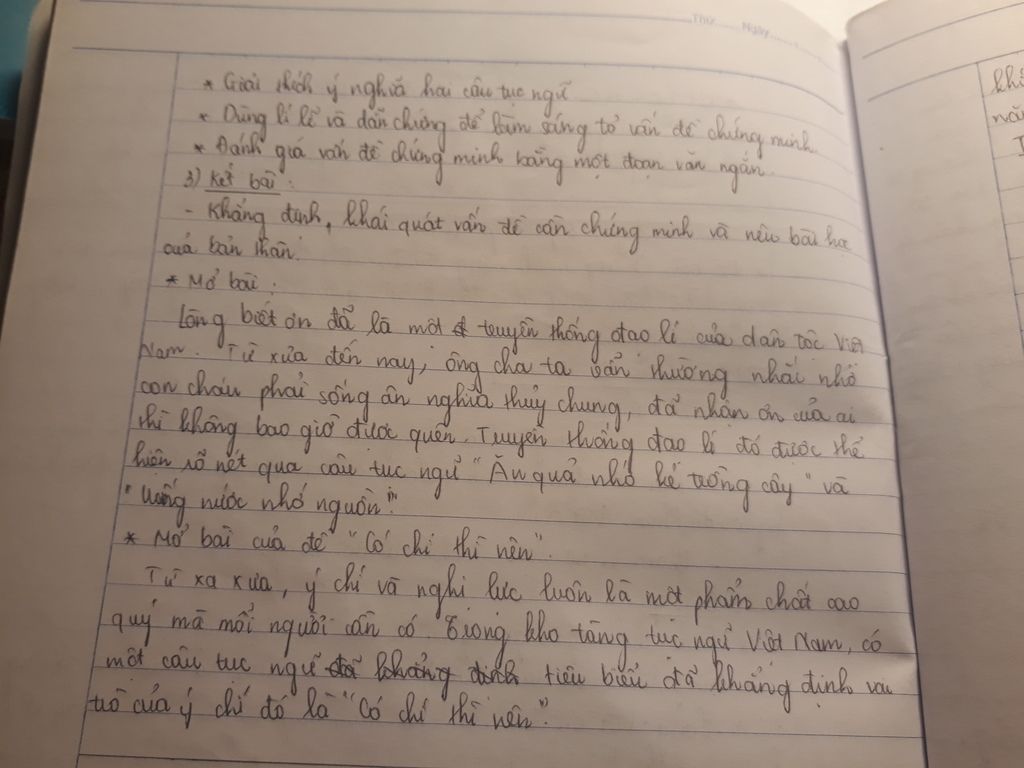 Thứ Ngày
* Giải thích ý nghĩa hai câu tục ngữ
* Dùng lí lẽ và dẫn chứng để làm sáng tỏ vấn đề chứng minh.
* Đánh giá vấn đề chứng minh bằng một đoạn văn ngắn.
3) Kết bài:
- Khẳng định, khái quát vấn đề cần chứng minh và nêu bài học
của bản thân.
* Mở bài:
Lòng biết ơn đã là một truyền thống đạo lí của dân tộc Việt
Nam. Từ xưa đến nay, ông cha ta vẫn thường nhắc nhở
con cháu phải sống ân nghĩa thủy chung, đã nhận ơn của ai
thì không bao giờ được quên. Truyền thống đạo lí đó được thể
hiện rõ nét qua câu tục ngữ "Ăn quả nhớ kẻ trồng cây" và
"Uống nước nhớ nguồn".
* Mở bài của đề "Có chí thì nên".
Từ xa xưa, ý chí và nghị lực luôn là một phẩm chất cao
quý mà mỗi người cần có. Trong kho tàng tục ngữ Việt Nam, có
một câu tục ngữ đã khẳng định tiêu biểu đã khẳng định vai
trò của ý chí đó là "Có chí thì nên".